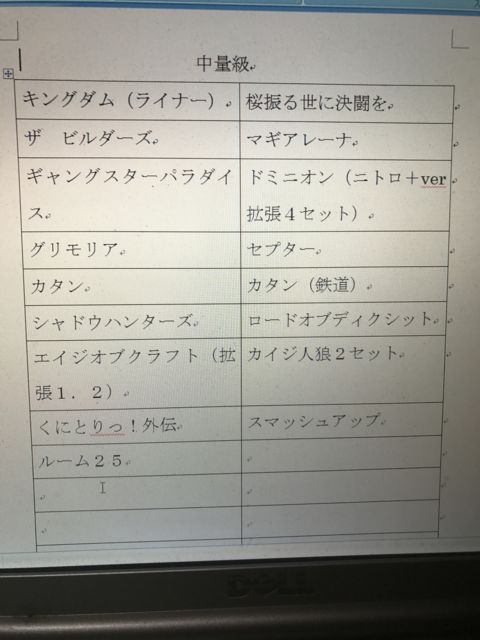 中量級
キングダム（ライナー） 桜振る世に決闘を
ザ　ビルダーズ マギアレーナ
ギャングスターパラダイ ドミニオン（ニトロ＋ver
ス 拡張４セット）
グリモリア セプター
カタン カタン（鉄道）
シャドウハンターズ ロードオブディクシット
エイジオブクラフト（拡 カイジ人狼２セット
張１．２）
くにとりっ！外伝 スマッシュアップ
ルーム２５
DELL